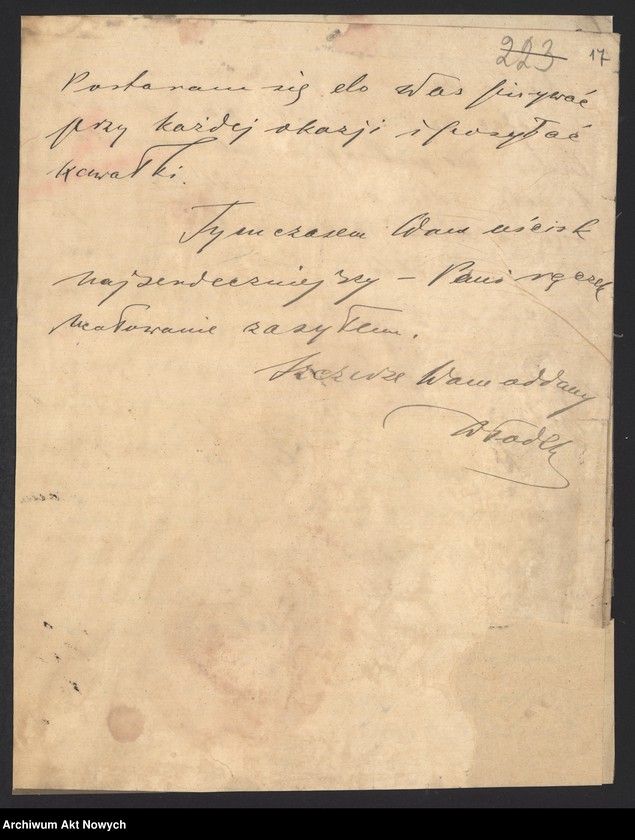 223 17
Postaram się do Was pisywać
przy każdej okazji i posyłać
kawałki.
Tymczasem Wam uścisk
najserdeczniejszy – Pani rączek
ucałowanie zasyłam.
Szczerze Wam oddany
Włodek
Archiwum Akt Nowych